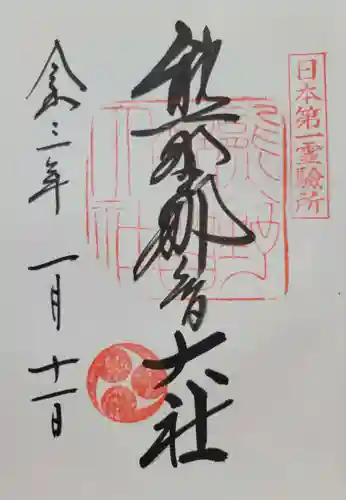 日本第一霊驗所
熊野那智大社
令和三年 一月 十一日